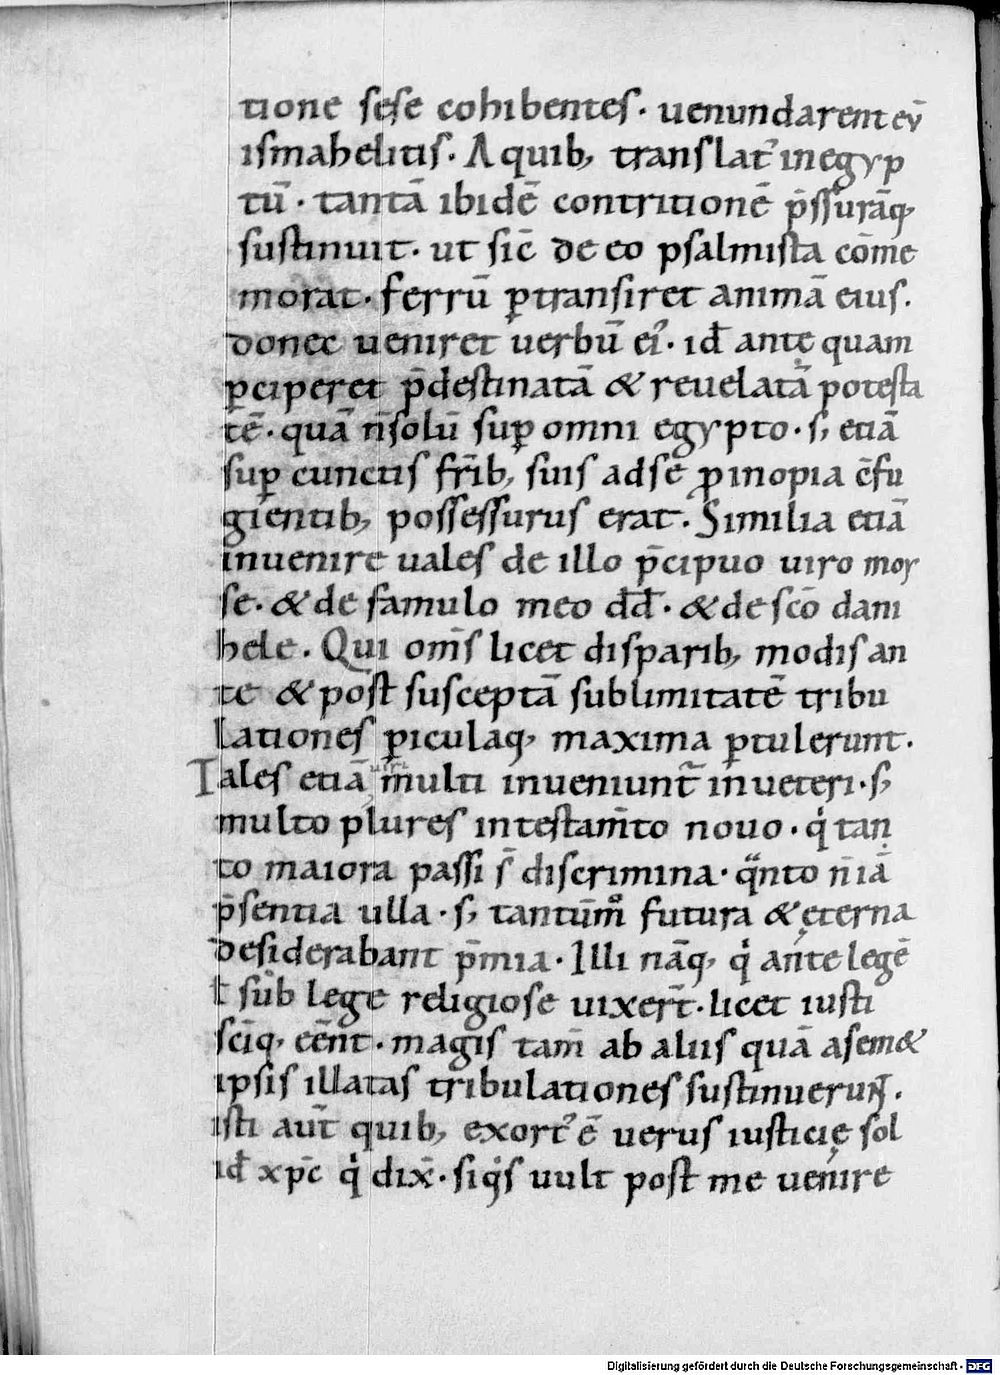 tione sese cohibentes · uenundarent eū
ismahelitis · A quib; translat᾽ in egyp
tū · tantā ibidē contritionē p̄ssurāq;
sustinuit · ut sic̄ de eo psalmista cōme
morat · ferrū ꝑtransiret animā eius .
donec ueniret uerbū ei᾽ · id̄ antę quam
ꝑciperet p̄destinatā & reuelatā potesta
tē · quā n̄ solū suꝑ omni egypto · s; etiā
suꝑ cunctis fr̄ib; suis ad se ꝓ inopia c̄fu
gientib; possessurus erat . Similia etiā
inuenire uales de illo p̄cipuo uiro moy
se · & de famulo meo dd̄ · & de sc̄o dani
hele . Qui om̄s licet disparib; modis an
te & post susceptā sublimitatē tribu
lationes ꝑiculaq; maxima ꝑtulerunt .
Tales etiā uiri multi inueniunt᷑ in ueteri · s;
multo plures in testam̄to nouo · qͥ tan
to maiora passi s̄ discrimina · qͣnto n̄ iā
p̄sentia ulla · s; tantūm̊ futura & ęterna
desiderabant p̄mia · Illi nāq; qͥ ante legē
ł sub lege religiose uixer̄t · licet iusti
sc̄iq; eēnt · magis tam̄ ab aliis quā a semet
ipsis illatas tribulationes sustinuerunt .
isti aut̄ quib; exort᾽ ē uerus iusticię sol
id̄ xp̄c qͥ dix̄ · siqͥs uult post me uenire
Digitalisierung gefördert durch die Deutsche Forschungsgemeinschaft - DFG